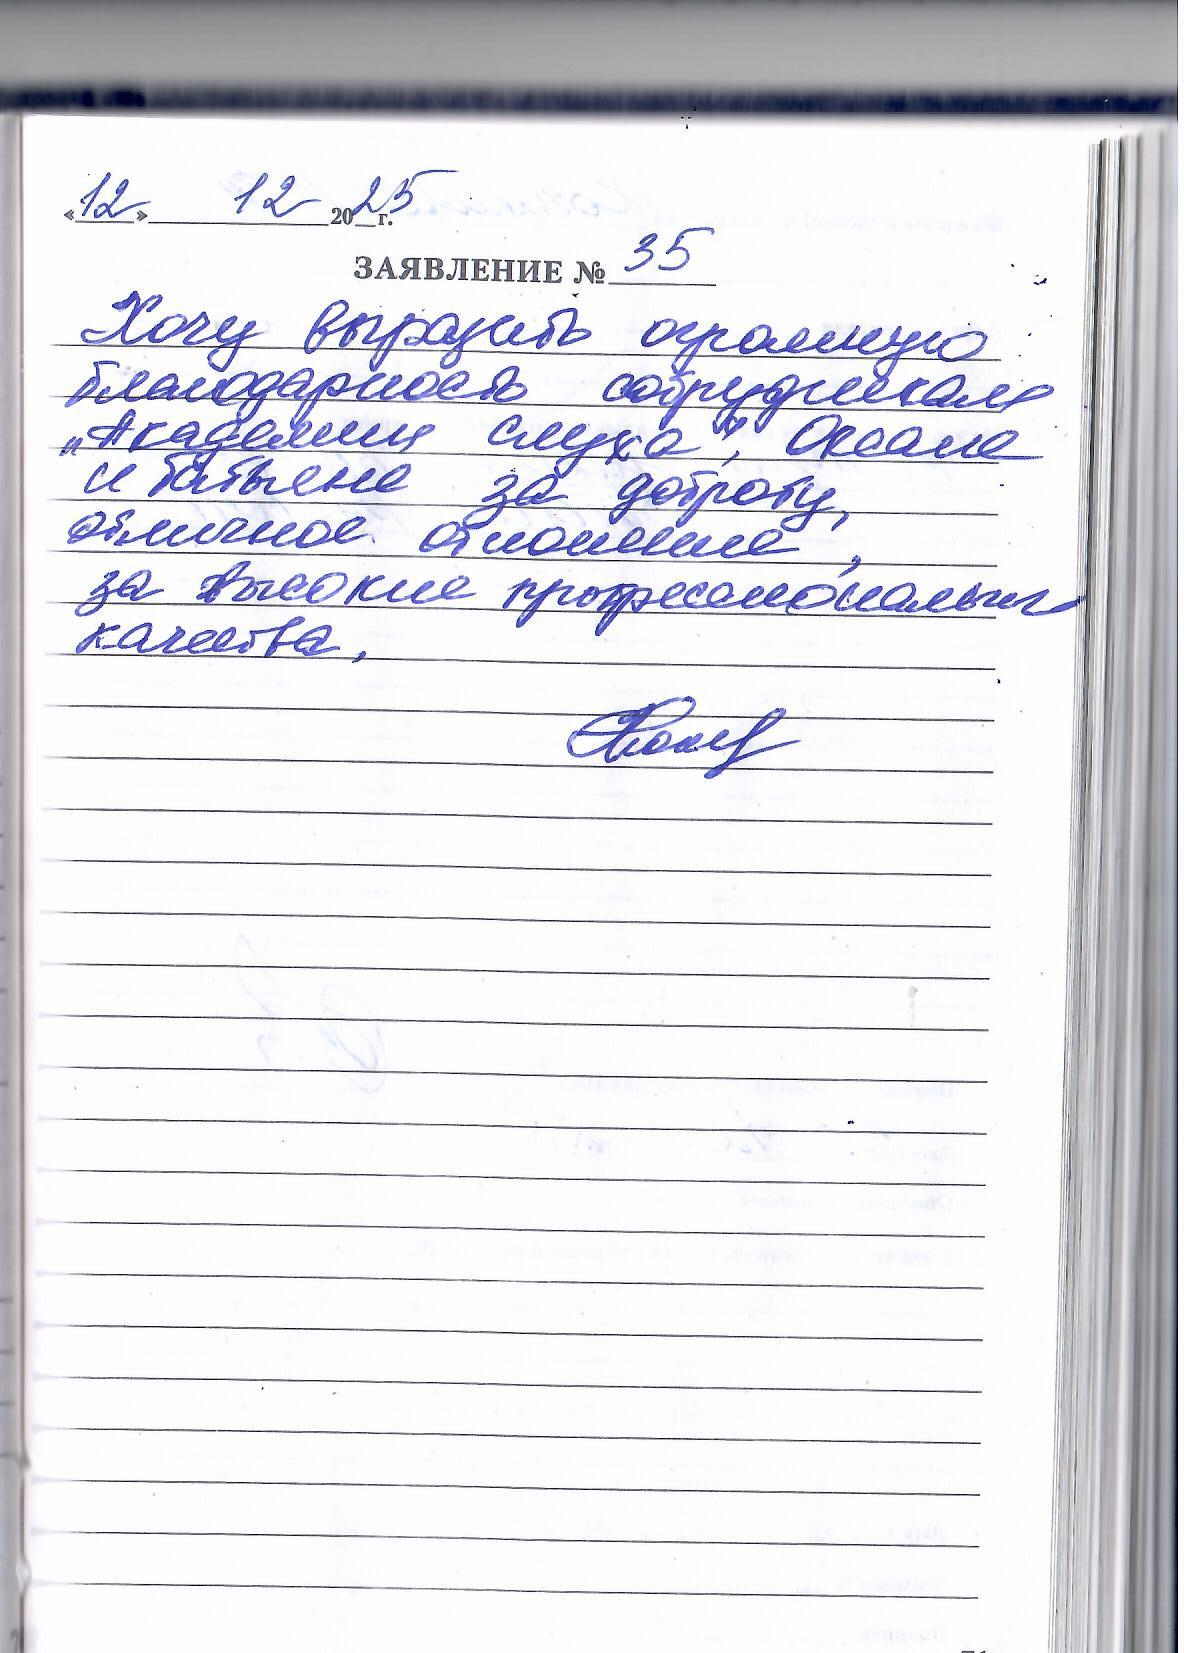 «12» 12 2025 г.
ЗАЯВЛЕНИЕ № 35
Хочу выразить огромную
благодарность сотрудникам
„Академии слуха", Оксане
и Татьяне за доброту,
отличное отношение,
за высокие профессиональные
качества.